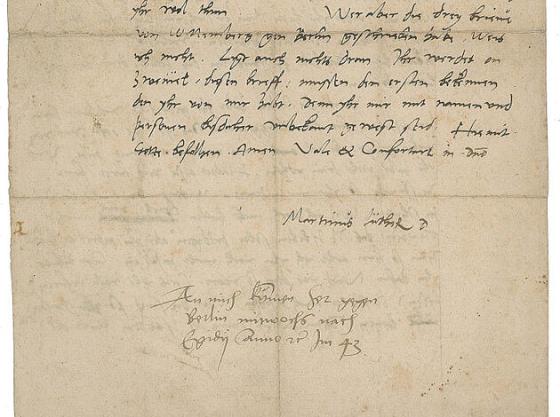 yhr wol thun. Wer aber die drey brieve
von Wittemberg gen Berlin geschrieben habe, Weis
ich nicht. Ligt auch nichts dran Ihr werdet on
zweivel, diesen brieff, mussen den ersten bekennen
den yhr von mir habt. Denn yhr mir mit namen und
personen bisdaher unbekant gewest seid. Hiemit
Gotte befolhen. Amen Vale & Confortare in dno
Martinus Luther D
An mich kumen her gegen
Berlin mitwochs nach
Egidij Anno &c Im 43